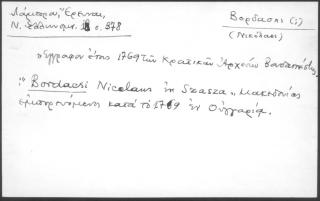 Λάμπρου, Έρευναι,
Ν. Ελληνομν. 8 σ. 378
Βορδάσκι (;)
(Νικόλαος)
έγγραφον έτους 1769 των Κρατικών Αρχείων Βουδαπέστης.
"Bordachi Nicolaus in Szasza" Μακεδονίας
εμπορευόμενος κατά το 1769 εν Ουγγαρία.